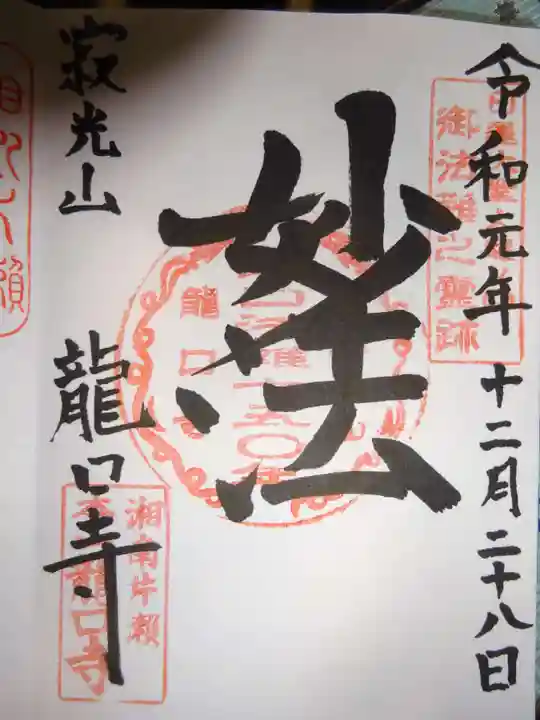 令和元年 十二月二十八日
御法難之霊跡
妙法
龍口寺
寂光山 龍口寺
湘南片瀬
龍口寺